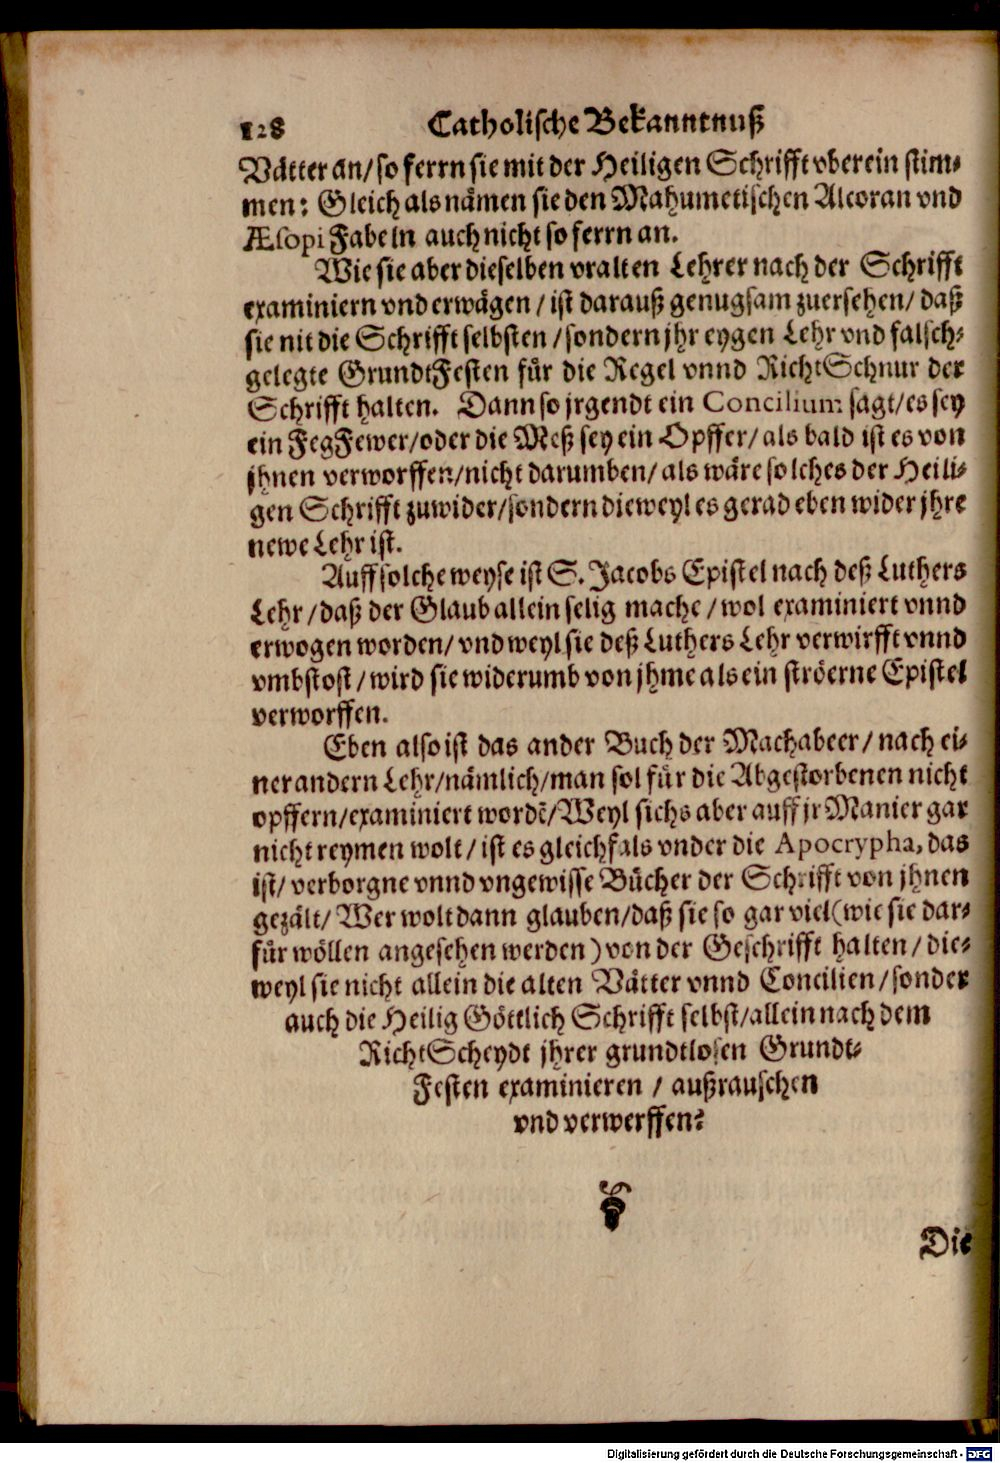 128 Catholische Bekanntnuß
Vätter an/ so ferrn sie mit der Heiligen Schrifft vberein stim-
men: Gleich als nämen sie den Mahumetischen Alcoran vnd
Æsopi Fabeln auch nicht so ferrn an.
Wie sie aber dieselben vralten Lehrer nach der Schrifft
examiniern vnd erwägen / ist darauß genugsam zuersehen/ daß
sie nit die Schrifft selbsten / sondern jhr eygen Lehr vnd falsch-
gelegte GrundtFesten für die Regel vnnd RichtSchnur der
Schrifft halten. Dann so jrgendt ein Concilium sagt/ es sey
ein FegFewer/ oder die Meß sey ein Opffer/ als bald ist es von
jhnen verworffen/ nicht darumben/ als wäre solches der Heili-
gen Schrifft zuwider/ sondern dieweyl es gerad eben wider jhre
newe Lehr ist.
Auff solche weyse ist S. Jacobs Epistel nach deß Luthers
Lehr / daß der Glaub allein selig mache / wol examiniert vnnd
erwogen worden/ vnd weyl sie deß Luthers Lehr verwirfft vnnd
vmbstost / wird sie widerumb von jhme als ein ströerne Epistel
verworffen.
Eben also ist das ander Buch der Machabeer/ nach ei-
ner andern Lehr/ nämlich/ man sol für die Abgestorbenen nicht
opffern/ examiniert wordẽ/ Weyl sichs aber auff jr Manier gar
nicht reymen wolt / ist es gleichfals vnder die Apocrypha, das
ist/ verborgne vnnd vngewisse Bücher der Schrifft von jhnen
gezält/ Wer wolt dann glauben/ daß sie so gar viel (wie sie dar-
für wöllen angesehen werden) von der Geschrifft halten / die-
weyl sie nicht allein die alten Vätter vnnd Concilien / sonder
auch die Heilig Göttlich Schrifft selbst/ allein nach dem
RichtScheydt jhrer grundtlosen Grundt-
Festen examinieren / außrauschen
vnd verwerffen?
Die
Digitalisierung gefördert durch die Deutsche Forschungsgemeinschaft - DFG